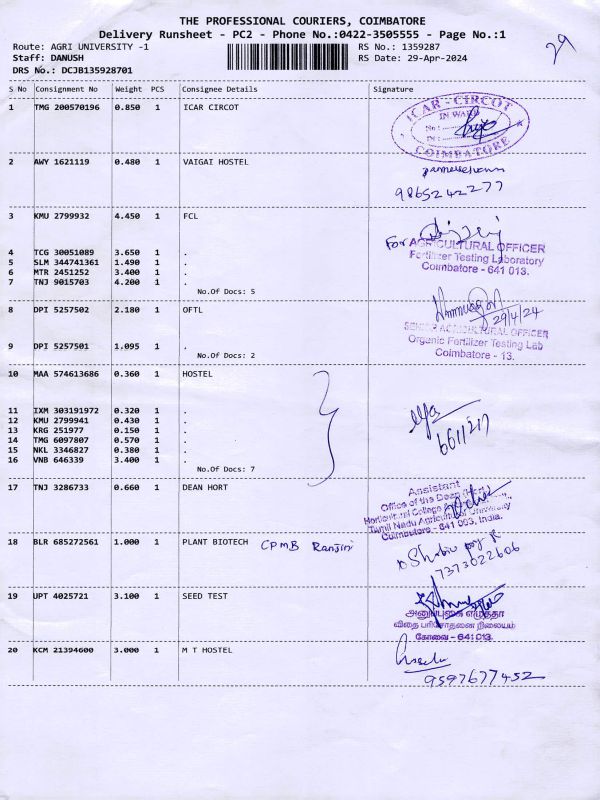 THE PROFESSIONAL COURIERS, COIMBATORE
Delivery Runsheet - PC2 - Phone No.:0422-3505555 - Page No.:1
Route: AGRI UNIVERSITY -1 RS No.: 1359287
Staff: DANUSH RS Date: 29-Apr-2024
DRS No.: DCJB135928701
29
S No Consignment No Weight PCS Consignee Details Signature
1 TMG 200570196 0.850 1 ICAR CIRCOT
ICAR - CIRCOT
IN WARD
No :
COIMBATORE
2 AWY 1621119 0.480 1 VAIGAI HOSTEL
9865242277
3 KMU 2799932 4.450 1 FCL
For AGRICULTURAL OFFICER
Fertilizer Testing Laboratory
Coimbatore - 641 013.
4 TCG 30051089 3.650 1 .
5 SLM 344741361 1.490 1 .
6 MTR 2451252 3.400 1 .
7 TNJ 9015703 4.200 1 .
No.Of Docs: 5
8 DPI 5257502 2.180 1 OFTL
29/4/24
SENIOR AGRICULTURAL OFFICER
Organic Fertilizer Testing Lab
Coimbatore - 13.
9 DPI 5257501 1.095 1 .
No.Of Docs: 2
10 MAA 574613686 0.360 1 HOSTEL
11 IXM 303191972 0.320 1 .
12 KMU 2799941 0.430 1 .
13 KRG 251977 0.150 1 .
14 TMG 6097807 0.570 1 .
15 NKL 3346827 0.380 1 .
16 VNB 646339 3.400 1 .
No.Of Docs: 7
17 TNJ 3286733 0.660 1 DEAN HORT
Assistant
Office of the Dean (Hort)
Horticultural College
Tamil Nadu Agricultural University
Coimbatore - 641 003, India.
18 BLR 685272561 1.000 1 PLANT BIOTECH CPMB Ranjini
7373022606
19 UPT 4025721 3.100 1 SEED TEST
அனுப்புகை எழுத்தர்
விதை பரிசோதனை நிலையம்
கோவை - 641 013.
20 KCM 21394600 3.000 1 M T HOSTEL
9597677452